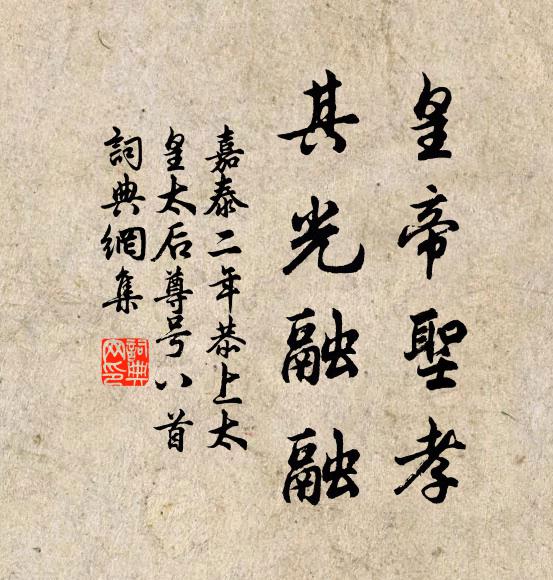 皇帝聖孝
其光融融
嘉泰二年恭上太
皇太后尊号八首
詞典網集
詞典網印